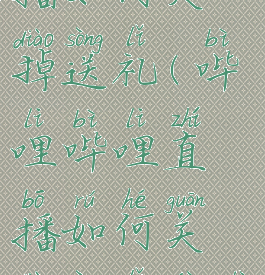 diào sòng lǐ bì
掉送礼(哔
lī bì lī zhí
哩哔哩直
bō rú hé guān
播如何关